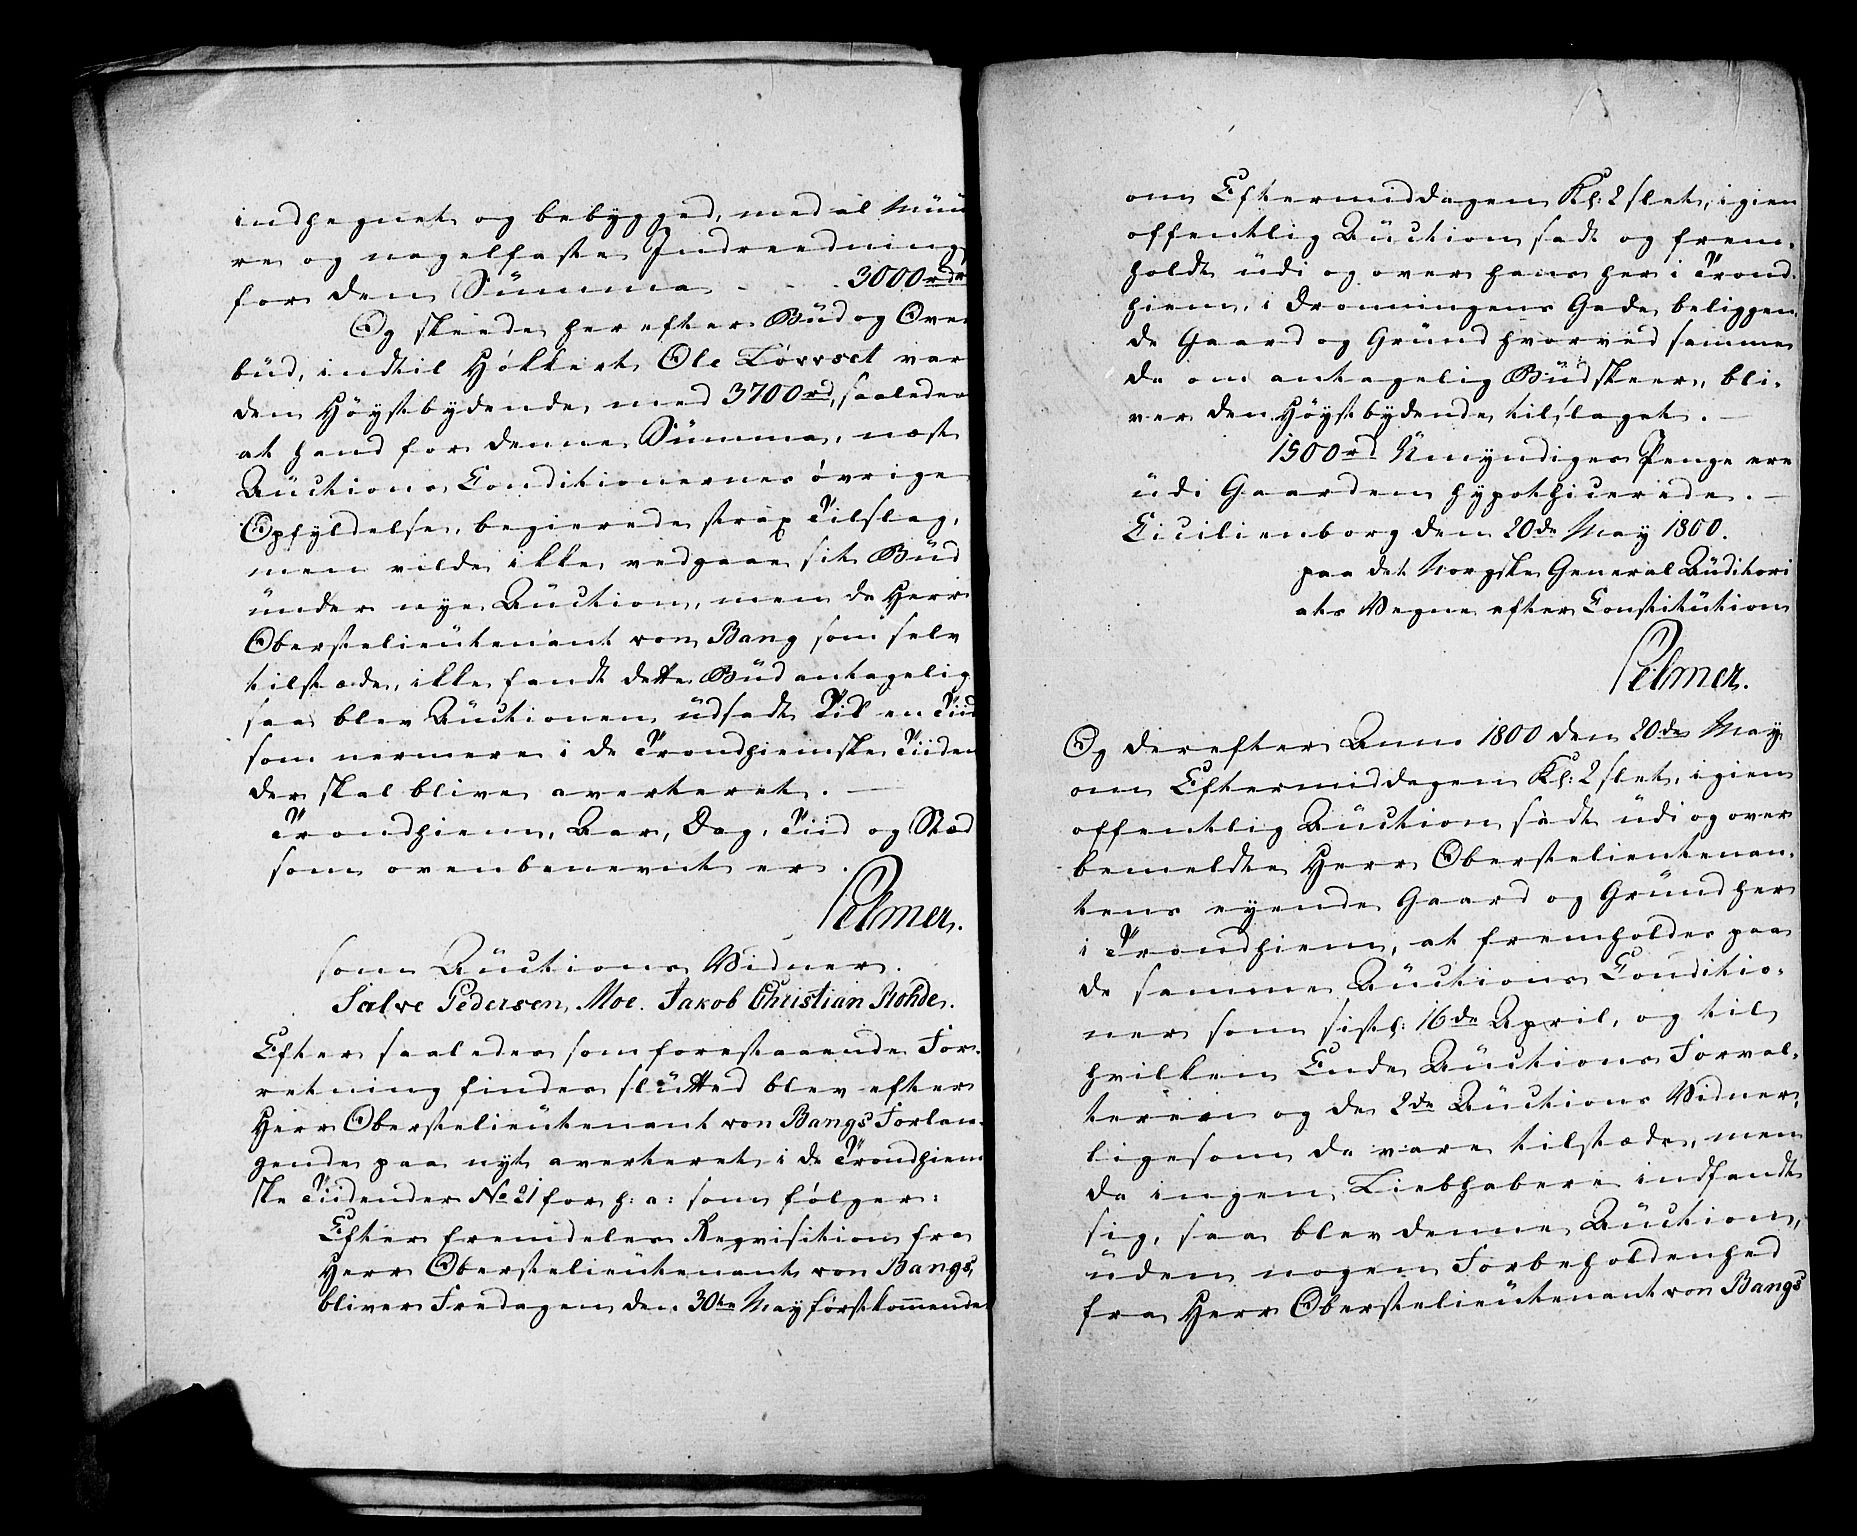 indhegnet og bebygged, med al Müü
re og nagelfaste Indreedning
for den Sümma - - . 3000rdr
Og skeede her efter Büd og Over
büd, indtil Høkkert Ole Løvset var
den Høystbydende med 3700rd, saaledes
at hand for denne Sümma, næst
Aüctions Conditionernes øvrige
Opfyldelse, begierede strax Tilslag,
men vilde ikke vedgaae sit Büd
ünder nye Aüction, men da Herr
Oberstelieütenant von Bang som selv
tilstæde, ikke fandt dette Büd antagelig
saa blev Aüctionen üdsadt Til en Tiid
som nermere i de Trondhiemske Tiiden
der skal blive averteret. —
Trondhiem, Aar, Dag, Tiid og Stæd
som ovenbenevnt er.
Selmer.
som Aüctions Vidner.
Salve Pedersen Moe. Jakob Christian Rohde.
Efter saaledes som forestaaende For-
retning findes slütted blev efter
Herr Oberstelieütenant von Bangs Forlan-
gende paa nyt averteret i de Trondhiem
ske Tiidender No 21 for h: a: som følger:
Efter fremdeles Reqvisition fra
Herr Oberstelieütenant von Bangs,
bliver Fredagen den 30te May førstkommende
om Eftermiddagen Kl: 2 slet, igien
offentlig Aüction sadt og frem-
holdt üdi og over hans her i Trond-
hiem, i Dronningens Gade beliggen-
de Gaard og Gründ hvorved samme
da om antagelig Büd skeer, bli-
ver den Høystbydende tilslaget. —
1500rd Ümyndiges Penge ere
üdi Gaarden hypothicerede. —
Cicilienborg den 20de May 1800.
paa det Norgske General Aüditori
ats Vegne efter Constitütion
Selmer.
Og derefter Anno 1800 den 20de May
om Eftermiddagen Kl: 2 slet, igien
offentlig Aüction sadt üdi og over
bemeldte Herr Oberstelieutenan-
tens eyende Gaard og Gründ her
i Trondhiem, at fremholdes paa
de samme Aüctions Conditio-
ner som sistl: 16de April, og til
hvilken Ende Aüctions Forval-
teren og de 2de Aüctions Vidner,
ligesom da vare tilstæde, men
da ingen Liebhabere indfandt
sig, saa blev denne Aüction,
üden nogen Forbeholdenhed
fra Herr Oberstelieütenant von Bangs